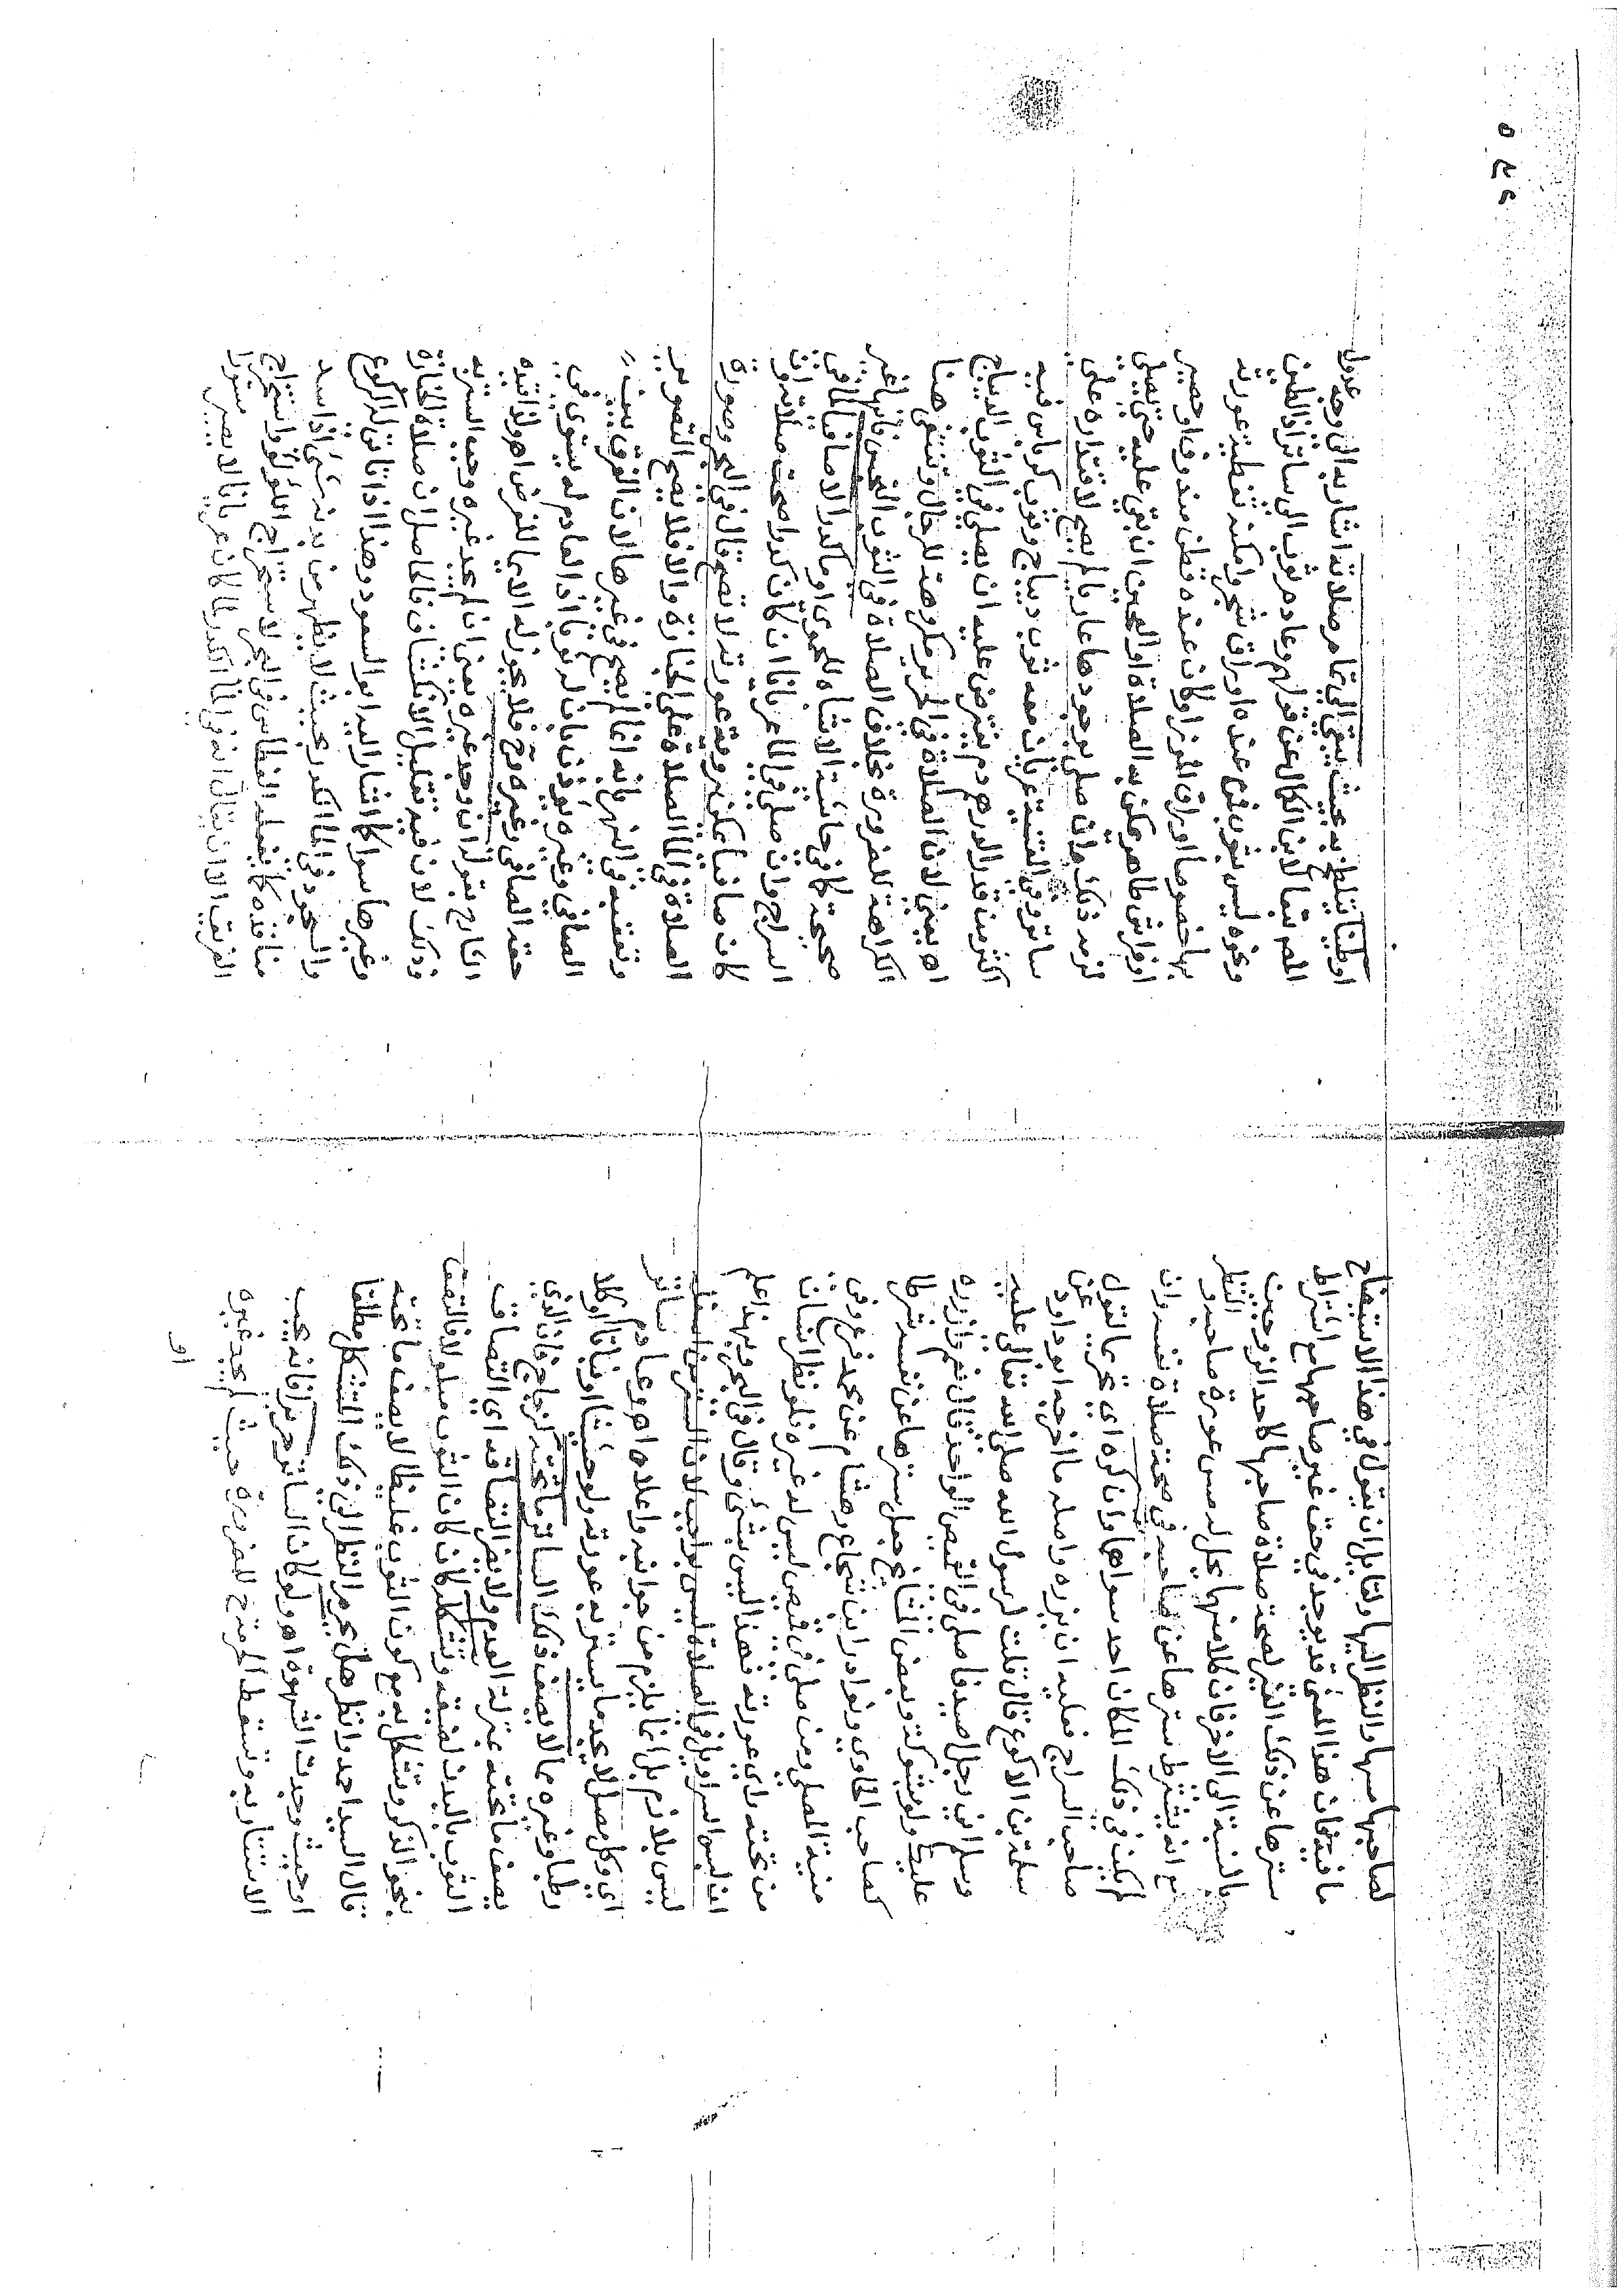 لصاحبها مسها والنظر اليها ولقائل ان يقول في هذا الاستيضاح
ما فيه فان هذا المعنى قد يوجد في حق غير صاحبها مع اشتراط
سترها عن ذلك الغير لصحة صلاة صاحبها كاحد الزوجين
بالنسبة الى الاخر فان كلا منهما يحل له مس عورة صاحبه والنظر
مع انه يشترط سترها عن صاحبه في صحة صلاة تفسد وان
لم يكن في ذلك المكان احد سواهما وان كره اي تحريما لقول
صاحب السراج فعليه ان يزره واصله ما اخرجه ابو داود عن
سلمة بن الاكوع قال قلت لرسول الله صلى الله تعالى عليه
وسلم اني رجل اصيد فاصلي في القميص الواحد قال نعم وازرره
عليك ولو بشوكة وبعض المشايخ جعل سترها عن نفسه شرطا
كصاحب الحاوي ونوادر ابن شجاع وهشام عن محمد فرع وفي
منية المصلي ومن صلى في قميص ليس له غيره فلو نظر انسان
من تحته راى عورته فهذا ليس بشئ وقال في البحر وبهذا علم
ان لبس السراويل في الصلاة ليس بواجب لان الستر من اسفل
ليس بلازم بل انما يلزم من جوانبه واعلاه اه وعادم ساتر
اي وكل يصل لا يجد ما يستر به عورته ولو حشيشا او نباتا او كلا
رطبا وغيره مما لا يصف ذلك الساتر ما تحته كزجاج فان الذي
يصف ما تحته بمنزلة العدم ولا يضر التصاقه اي التصاق
الثوب بالبدن لضيقه وتشكله كان كان الثوب مبلولا فالتصق
بنحو الذكر وتشكل به مع كون الثوب غليظا لا يصف ما تحته
قال السيد احمد وانظر هل يحرم النظر الى ذلك المتشكل مطلقا
او حيث وجدت الشهوة اه ولو كان الساتر حريرا فانه يجب
الاستتار به وتسقط الحرمة للضرورة حيث لم يجد غيره
او
او طينا يتلطخ به بحيث يبقى الى تمام صلاته استتار به الى وجه عدول
المص تبعا لابن الكمال عن قولهم وعادم ثوب الى ساتر اذ الطين
ونحوه ليس بثوب فرع عنده اوراق شجر وامكنه تغطية عورته
بها خصوصا اوراق الموز او كان عنده قطن مندوف او حصير
او فراش طاهر يمكن به الصلاة او العجين ان بقي عليه حتى يصلي
لزمه ذلك وان صلى بوجودها عاريا لم يصح لاقتداره على
ساتر وفي القنية عريان معه ثوب ديباج وثوب كرباس فيه
اكثر من قدر الدرهم دم يفترض عليه ان يصلي في الثوب الديباج
اه يعني لان الصلاة في الحرير مكروهة للرجال وتنتفى هنا
الكراهة للضرورة بخلاف الصلاة في الثوب النجس فانها غير
صحيحة كما في حاشية الاشباه للحموي او ماء كدرا لا صافيا كما في
السراج وان صلى في الماء عريانا ان كان كدرا صحت صلاته وان
كان صافيا يمكن رؤية عورته لا تصح قال في البحر وصورة
الصلاة في الماء الصلاة على الجنازة والا فلا يصح التصوير
وتعقبه في النهر بانه انما لم يصح في غيرها لان الفرق بينه
الصافي وغيره يؤذن بان له ثوبا اذ العادم له يستوي في
حقه الصافي وغيره وح فلا يجوز له الايماء للفرض اه ولذا قيده
الشارح بقوله ان وجد غيره يعني ان لم يجد غيره وجب الستر به
وذلك لان فيه تقليل الانكشاف فالحاصل ان صلاة الجنازة
وغيرها سواء كما اشار اليه ابو السعود وهذا اذا تاتى له الركوع
والسجود في الماء الكدر بحيث لا يظهر من بدنه شئ اذا سد
منافذه كما يفعله الغطاس في البحر لاستخراج اللؤلؤ واستخراج
الغريق الا ان يقال انه في الماء الكدر مما لا كان عريانا لا يصير مستورا